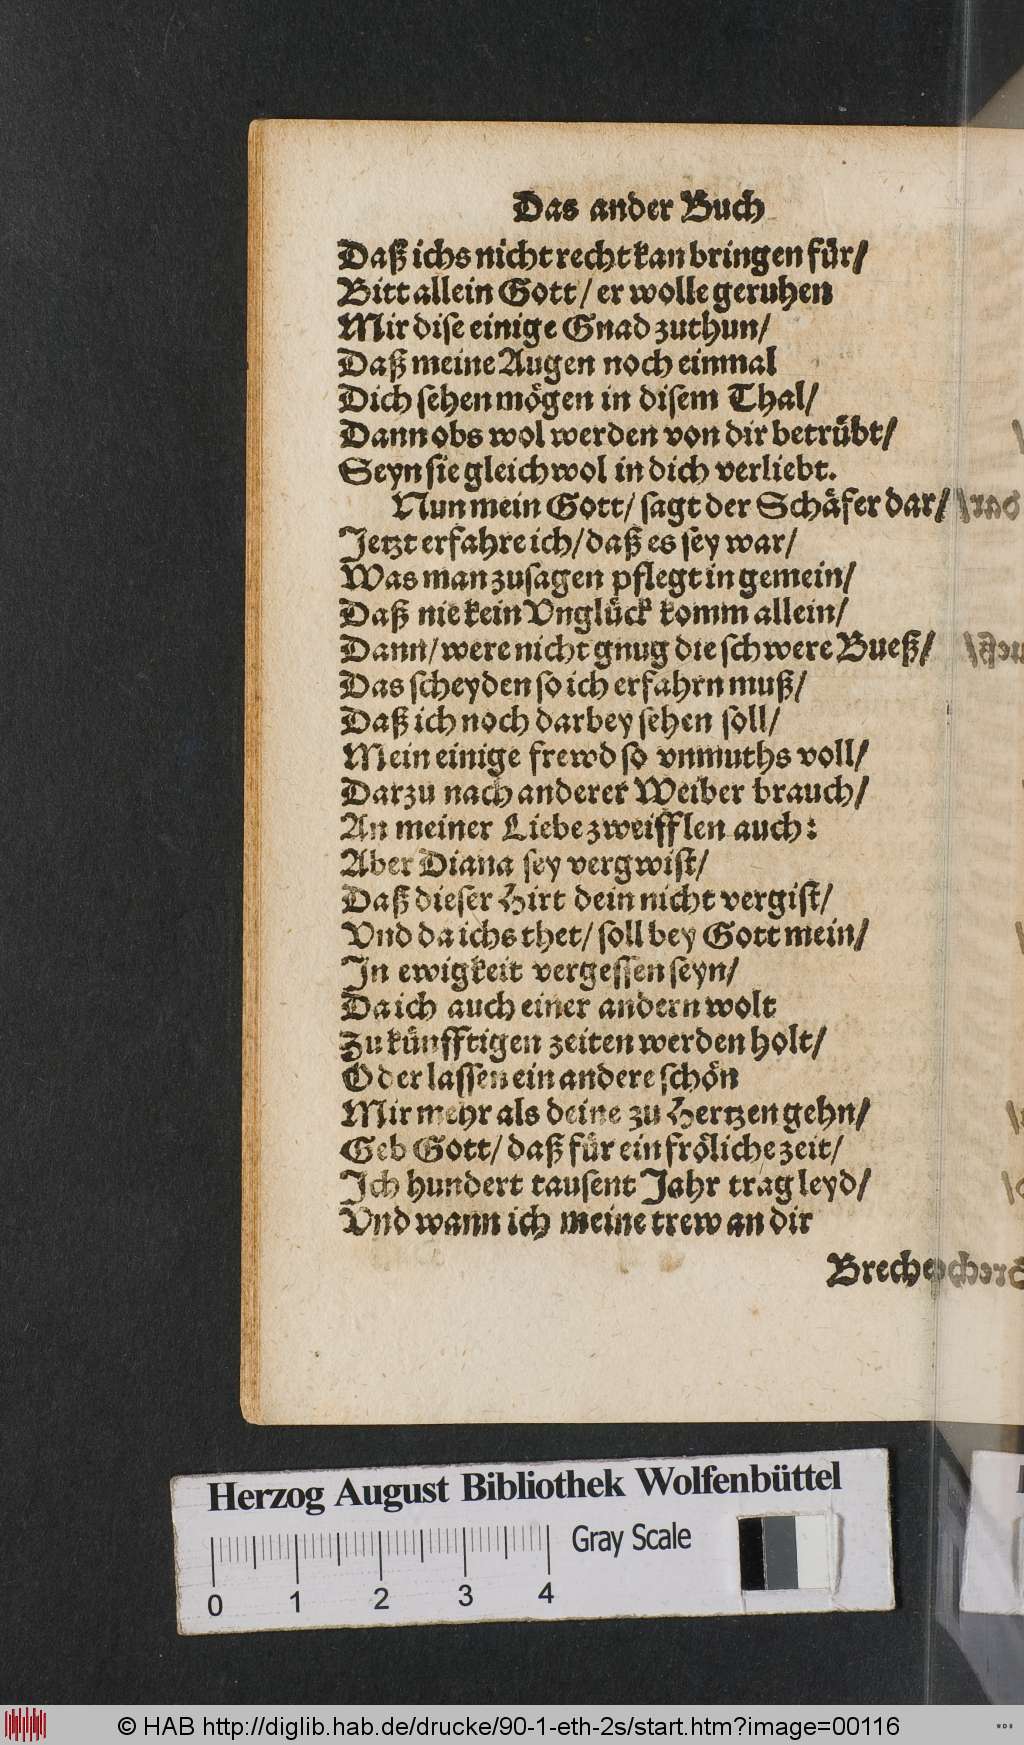 Das ander Buch
Daß ichs nicht recht kan bringen für/
Bitt allein Gott/ er wolle geruhen
Mir dise einige Gnad zuthun/
Daß meine Augen noch einmal
Dich sehen mögen in disem Thal/
Dann obs wol werden von dir betrübt/
Seyn sie gleichwol in dich verliebt.
Nun mein Gott/ sagt der Schäfer dar/
Jetzt erfahre ich/ daß es sey war/
Was man zusagen pflegt in gemein/
Daß nie kein Vnglück komm allein/
Dann/ were nicht gnug die schwere Bueß/
Das scheyden so ich erfahrn muß/
Daß ich noch darbey sehen soll/
Mein einige frewd so vnmuths voll/
Darzu nach anderer Weiber brauch/
An meiner Liebe zweifflen auch:
Aber Diana sey vergwist/
Daß dieser Hirt dein nicht vergist/
Vnd da ichs thet/ soll bey Gott mein/
In ewigkeit vergessen seyn/
Da ich auch einer andern wolt
Zu künfftigen zeiten werden holt/
Oder lassen ein andere schön
Mir mehr als deine zu Hertzen gehn/
Geb Gott/ daß für ein fröliche zeit/
Ich hundert tausent Jahr trag leyd/
Vnd wann ich meine trew an dir
Breche
Herzog August Bibliothek Wolfenbüttel
Gray Scale
0 1 2 3 4
© HAB http://diglib.hab.de/drucke/90-1-eth-2s/start.htm?image=00116